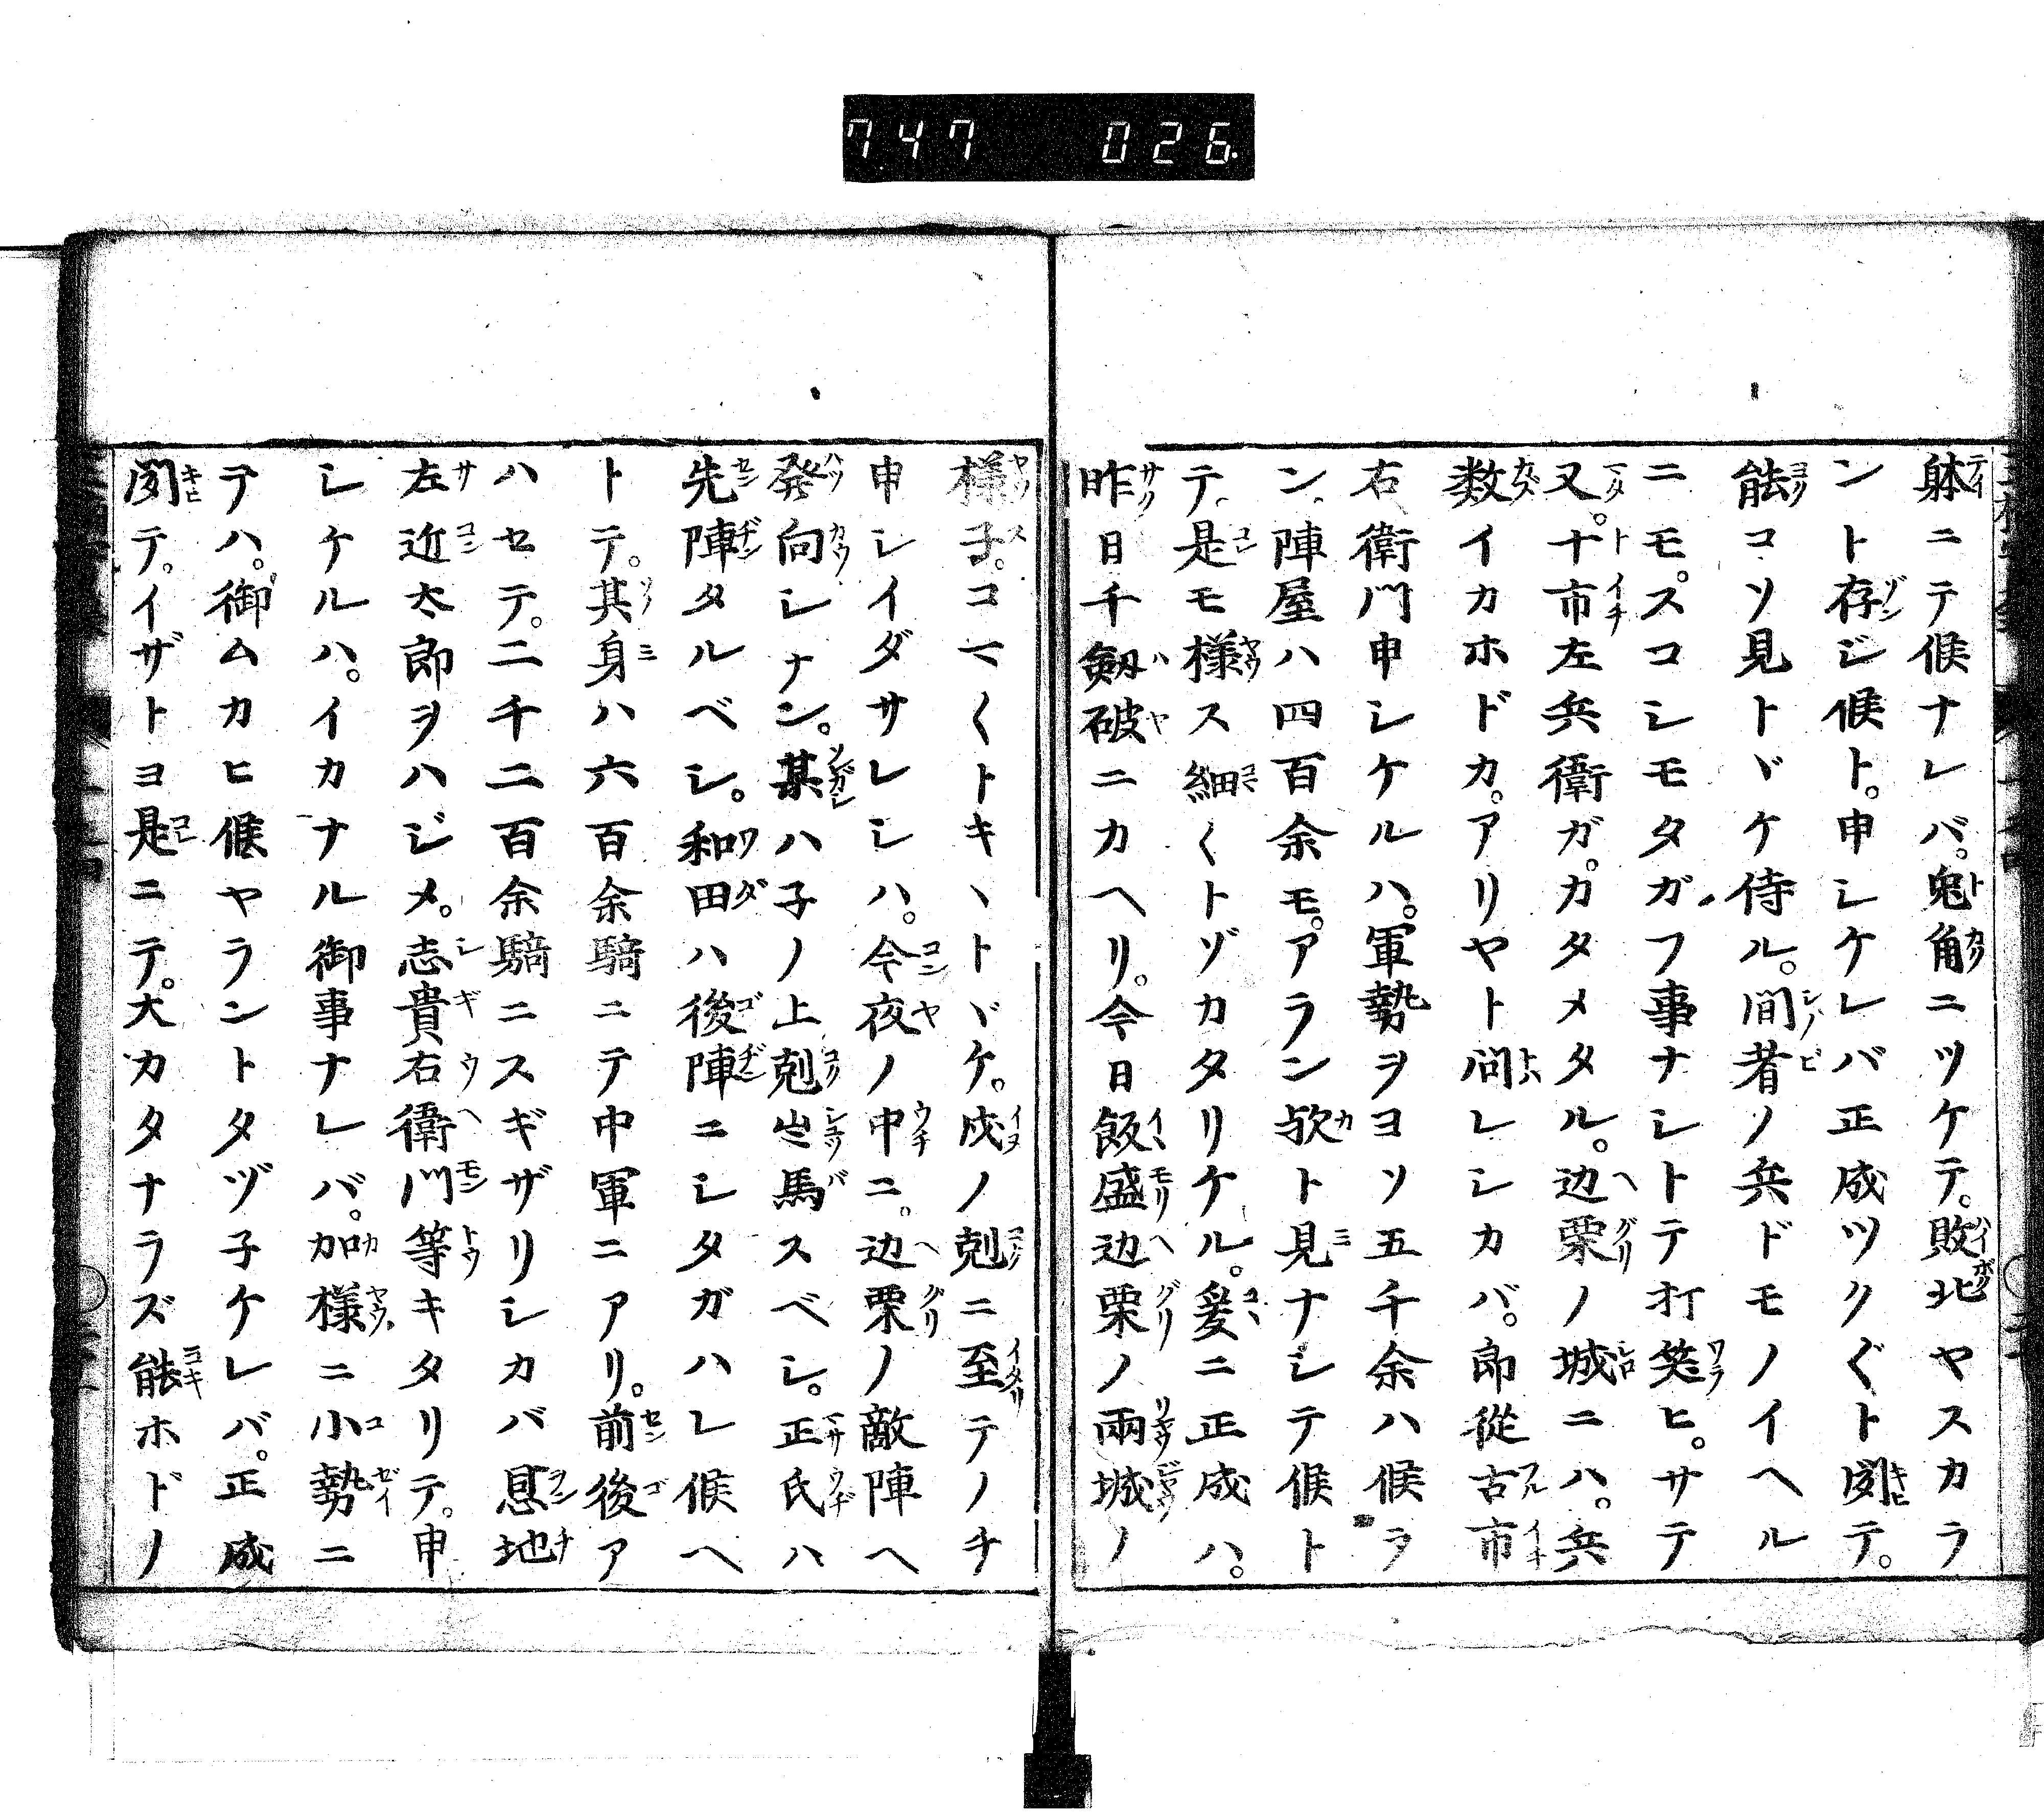 747 026
躰ニテ候ナレバ。兎角ニツケテ。敗北ヤスカラ
ント存ジ候ト。申シケレバ正成ツク〴〵ト聞テ。
能コソ見トヾケ侍ル。間者ノ兵ドモノイヘル
ニモ。スコシモタガフ事ナシトテ打笑ヒ。サテ
又。十市左兵衛ガ。カタメタル。辺栗ノ城ニハ。兵
数イカホドカ。アリヤト問レシカバ。郎従古市
右衛門申シケルハ。軍勢ヲヨソ五千余ハ候ラ
ン。陣屋ハ四百余モ。アラン歟ト見ナシテ候ト
テ。是モ様ス細〱トゾカタリケル。爰ニ正成ハ。
昨日千劔破ニカヘリ。今日飯盛辺栗ノ兩城ノ
様子。コマ〱トキヽトヾケ。戌ノ剋ニ至テノチ
申シイダサレシハ。今夜ノ中ニ。辺栗ノ敵陣ヘ
発向シナン。某ハ子ノ上剋出馬スベシ。正氏ハ
先陣タルベシ。和田ハ後陣ニシタガハレ候ヘ
トテ。其身ハ六百余騎ニテ中軍ニアリ。前後ア
ハセテ。二千二百余騎ニスギザリシカバ恩地
左近太郎ヲハジメ。志貴右衛門等キタリテ。申
シケルハ。イカナル御事ナレバ。加様ニ小勢ニ
テハ。御ムカヒ候ヤラントタヅ子ケレバ。正成
聞テ。イザトヨ是ニテ。大カタナラズ能ホドノ